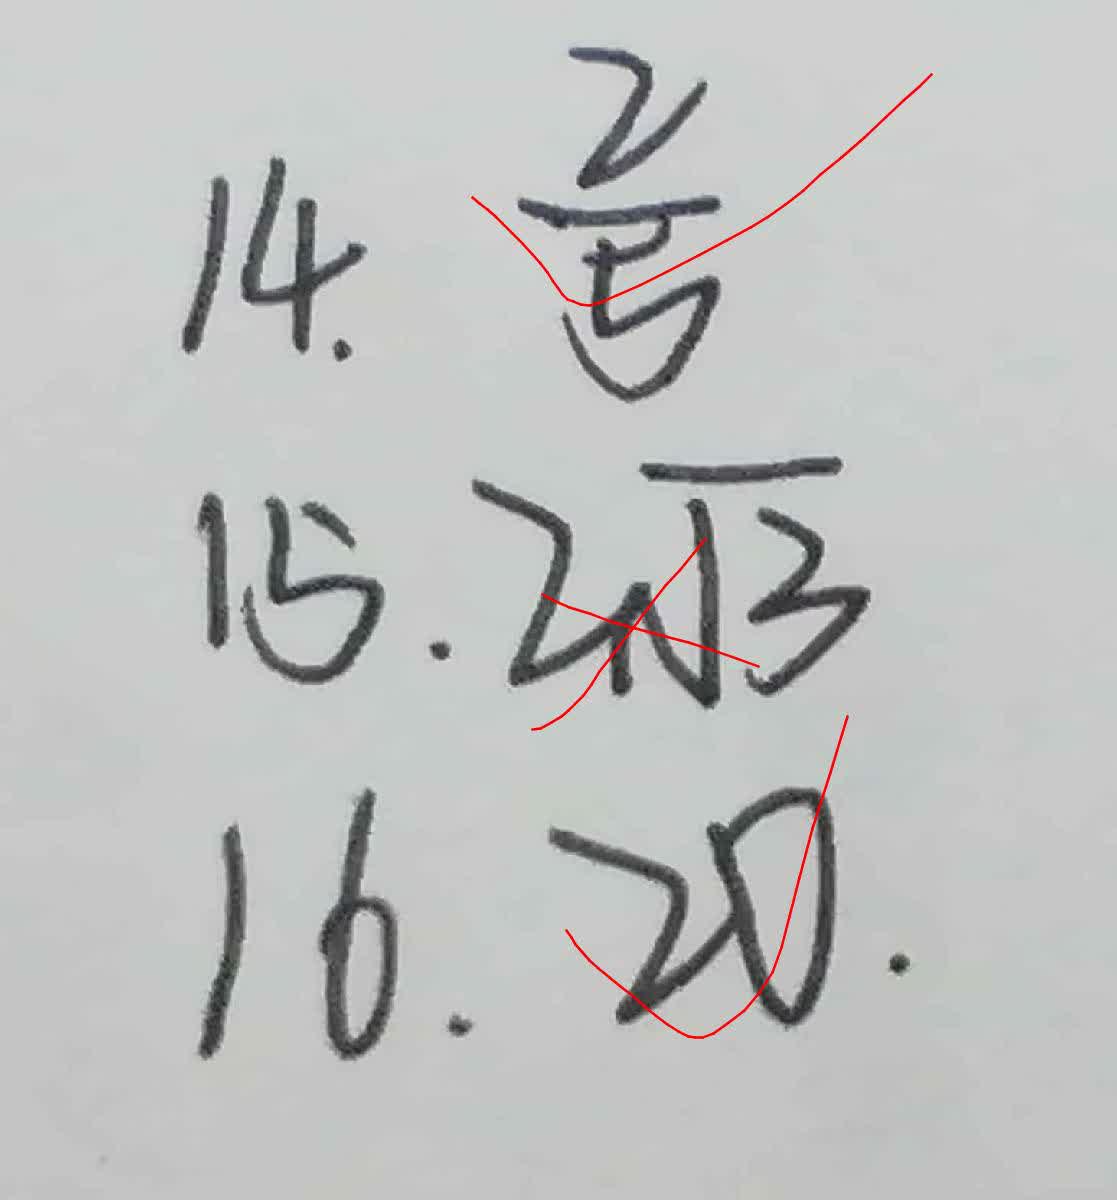 14. 2/5
15. 2√3
16. 20.